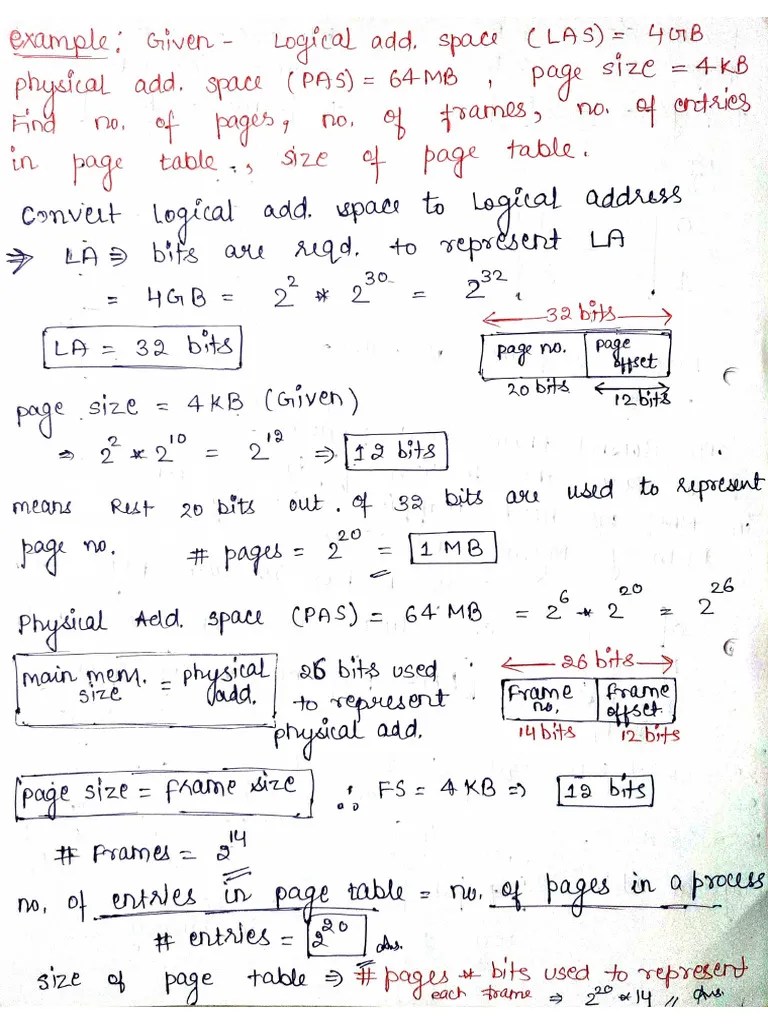 example: Given - Logical add. space (LAS) = 4GB
physical add. space (PAS) = 64MB , page size = 4KB
Find no. of pages, no. of frames, no. of entries
in page table., size of page table.
Convert Logical add. space to Logical address
⇒ LA ⇒ bits are reqd. to represent LA
= 4GB = 2^2 * 2^30 = 2^32.
32 bits
LA = 32 bits
page no. page offset
20 bits 12 bits
page size = 4KB (Given)
⇒ 2^2 * 2^10 = 2^12 ⇒ 12 bits
means Rest 20 bits out. of 32 bits are used to represent
page no. # pages = 2^20 = 1 MB
Physical Add. space (PAS) = 64 MB = 2^6 * 2^20 = 2^26
main mem. size = physical add.
26 bits used
to represent
physical add.
26 bits
Frame no. Frame offset
14 bits 12 bits
page size = frame size ∴ FS = 4 KB ⇒ 12 bits
# Frames = 2^14
no. of entries in page table = no. of pages in a process
# entries = 2^20 Ans.
size of page table ⇒ # pages * bits used to represent
each frame ⇒ 2^20 * 14 // Ans.